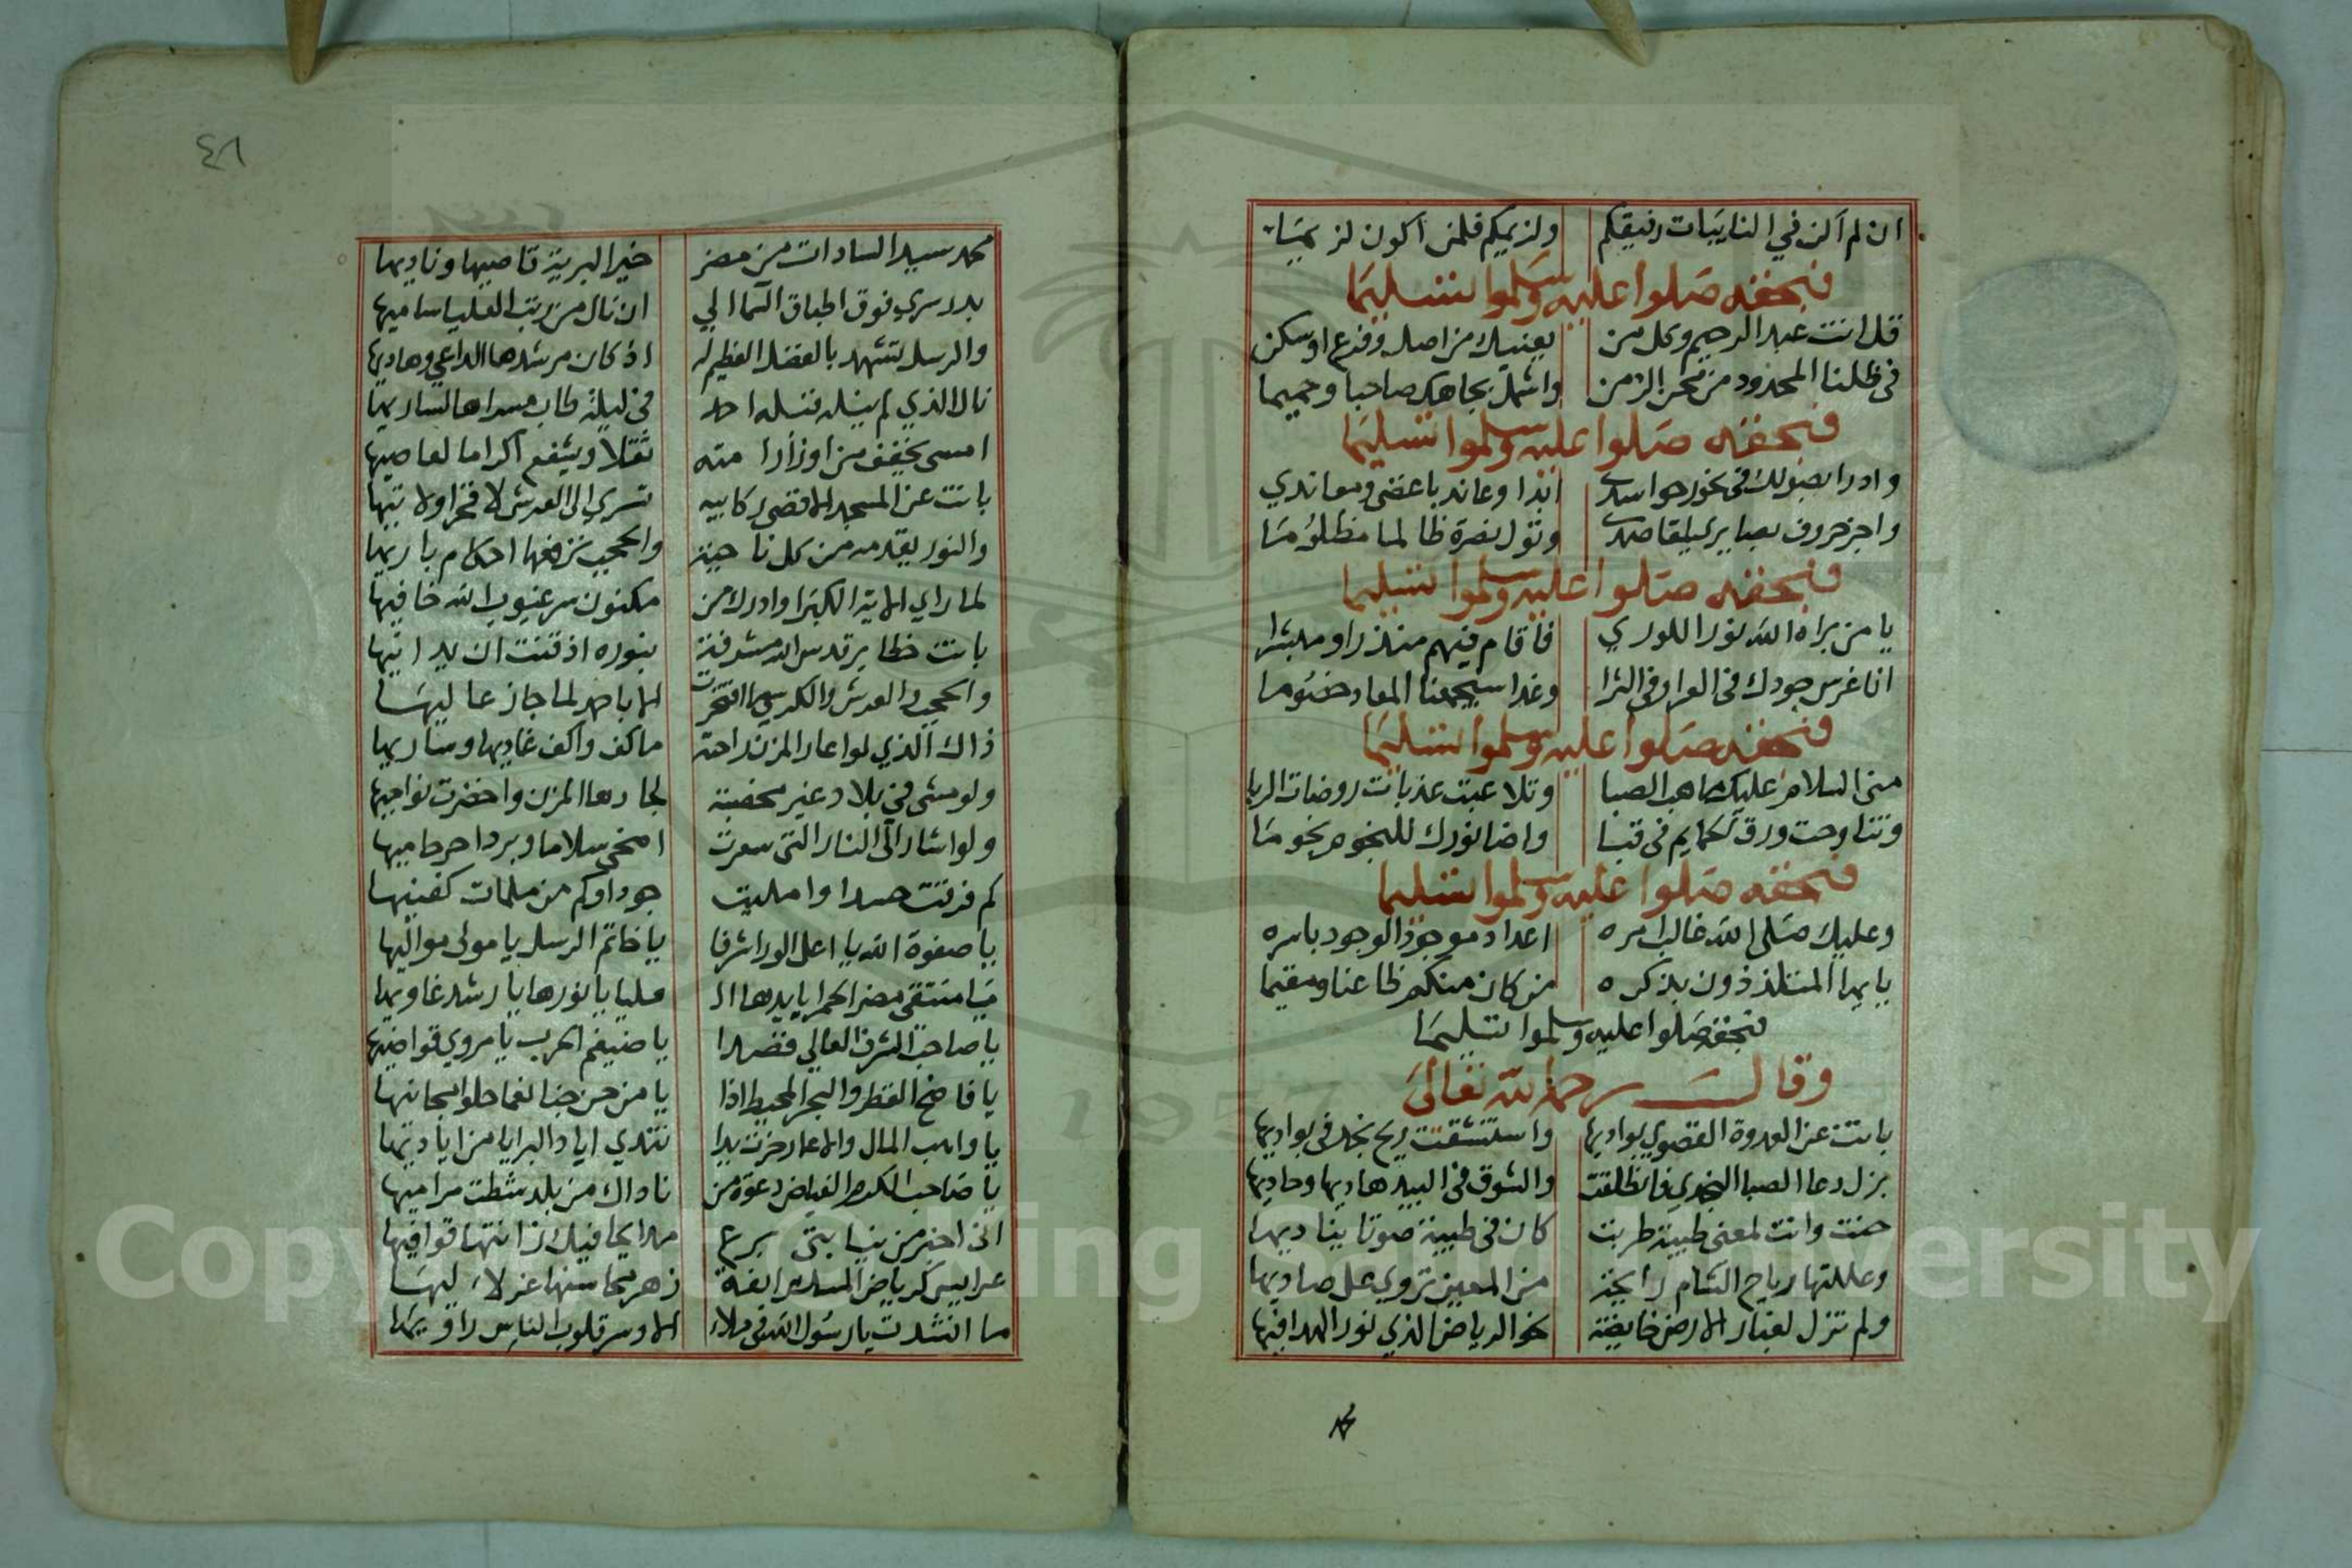 ان لم اكن في النايبات رفيقكم ولزيمكم فلمن اكون لزيما
فبحقه صلوا عليه وسلموا تسليما
قل انت عبد الرحيم وكل من يعنيك من اصل وفرع او سكن
في ظلنا الممدود من محن الزمن واشمل بجاهك صاحبا وحميما
فبحقه صلوا عليه وسلموا تسليما
وادرا بصولك في نحور حواسدي ابدا وعاند باغضي ومعاندي
واجز حروف بصايري ليلقا صدي وتول نصرة ظالما مظلوما
فبحقه صلوا عليه وسلموا تسليما
يا من براه الله نورا للوري فاقام فيهم منذرا ومبشرا
انا غرس جودك في العرا وفي الثرا وغدا سيجمعنا المعاد خصوما
فبحقه صلوا عليه وسلموا تسليما
مني السلام عليك ما هب الصبا وتلاعبت عذبات روضات الربا
وتناوحت ورق الحمايم في قبا واضا نورك للنجوم نجوما
فبحقه صلوا عليه وسلموا تسليما
وعليك صلى الله غالب امره اعداد موجود الوجود باسره
يا ايها المتلذذون بذكره من كان منكم ظاعنا ومقيما
فبحقه صلوا عليه وسلموا تسليما
وقال رحمه الله تعالى
باتت عن العدوة القصوي بواديها واستنشقت ريح نجد في بواديها
بزل دعا الصبا النجدي فانطلقت والشوق في البيد هاديها وحاديها
حنت وانت لمغنى طيبة طربت كان في طيبة صوتا يناديها
وعللتها رياح الشام رايحة من المعين تروي عل صاديها
ولم تزل لغبار الارض خايضة نحو الرياض الذي نور الهدا فيها
محمد سيد السادات من مضر خير البرية قاصيها ودانيها
بدر سري فوق اطباق السما الي ان نال من رتب العليا ساميها
والرسل تشهد بالفضل العظيم له اذ كان مرشدها الداعي وهاديها
نال الذي لم ينله قبله احد في ليلة طاب مسراها لساريها
امسى يخفف من اوزارا مته ثقلا ويشفع اكراما لعاصيها
باتت عن المسجد الاقصى ركابيه تسري الى العرش لا فخرا ولا تيها
والنور يقدمه من كل ناحية والحجب ترفعها احكام باريها
لما راي الاية الكبرا وادرك من مكنون سر غيوب الله خافيها
باتت خظاير قدس الله مشرفة بنوره
والحجب والعرش والكرسي ما افتخرت الا باحمد لما جاز عاليها
ذاك الذي لو اعار المزن راحته ما كف واكف غاديها وساريها
ولو مشى في بلاد غير مخصبة لجادها المزن واخضرت نواحيها
ولو اشار الى النار التي سعرت اضحى سلاما وبردا حر حاميها
كم فرقت صدا وا مليت جودا وكم من ملمات كفيتها
يا صفوة الله يا اعلى الورا شرفا يا خاتم الرسل يا مولى مواليها
يا منتقى مضر الحمرا يا يدها ال عليا يا نورها يا رشد غاويها
يا صاحب الشرف العالي يا ضيغم الحرب يا مروي قواضيها
يا فاضح القطر والبحر المحيط اذا يا من
يا واهب المال والاعمار تندي اياد البرايا من اياديها
يا صاحب الكرم الفياض دعوة من ناداك من بلد شطت مراميها
مدايحا فيك زانتها قوافيها
عرايس كرياض زهر محاسنها
ما انشدت يا رسول الله في ملاء الا وسر قلوب الناس راويها